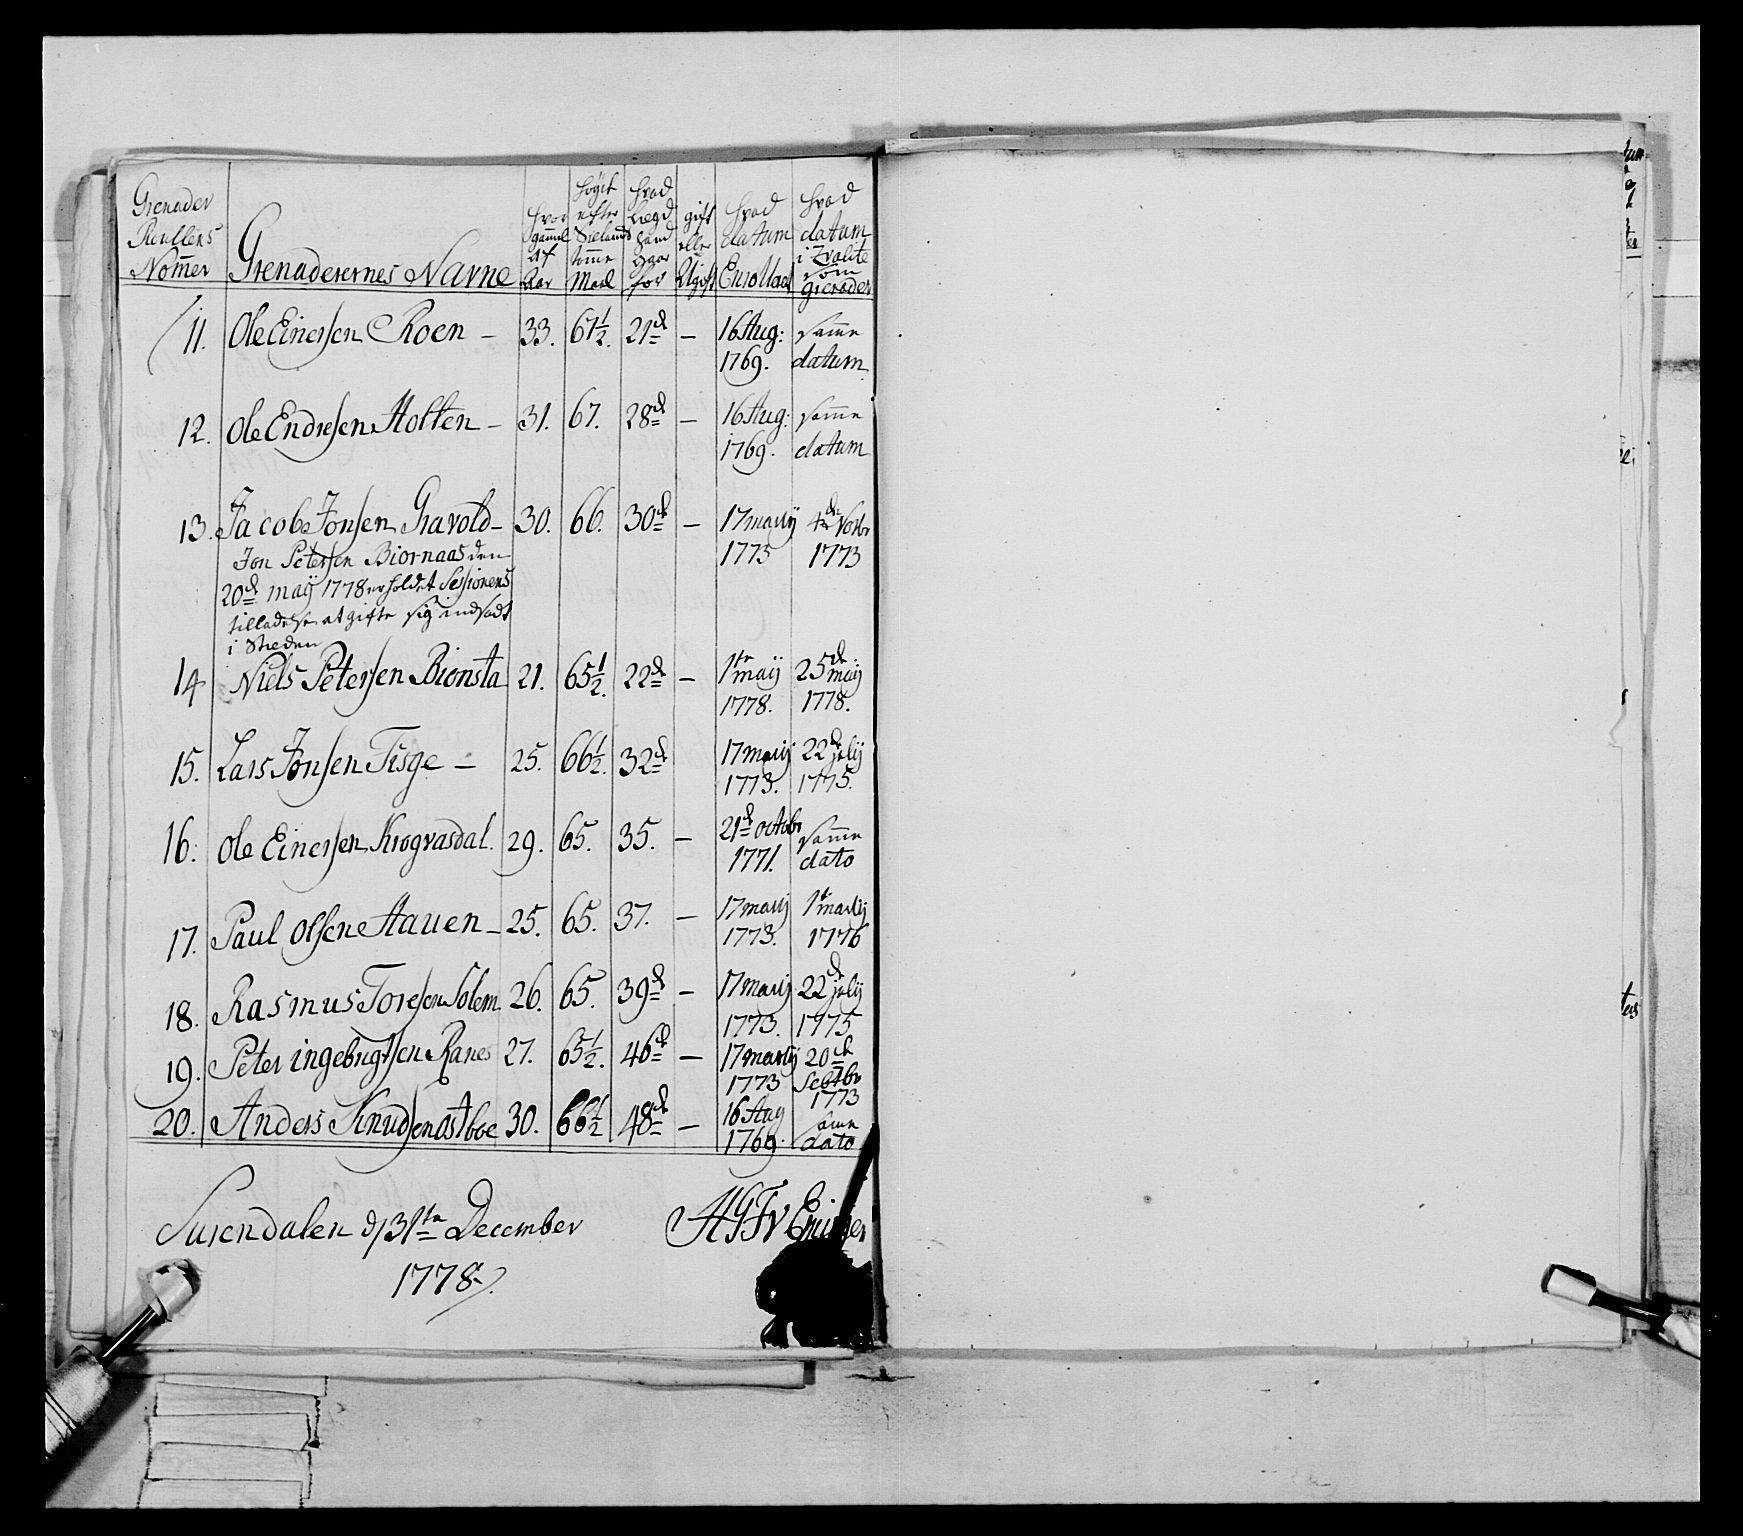 Grenader Roullens Nommer | Grenaderernes Navne | hvor gammel af Aar | høyit efter Siellands tomme Maal | hvad Lægd hand staar for | gift eller Ugift | hvad datum Enrollaat | hvad datum i Qvalite som grenader
11. Ole Einersen Roen – 33. 67½. 21de – 16 Aug: 1769. samme datum
12. Ole Endresen Holten – 31. 67. 28de – 16 Aug: 1769. samme datum
13. Jacob Jonsen Gravold – 30. 66. 30de – 17 martij 1773 4de Novbr 1773
Jon Petersen Biornaas den
20de maij 1778 erholdet Sessionens
tilladelse at gifte sig indsadt
i Steden
14 Niels Petersen Bionsta 21. 65½. 22de – 1te maij 1778. 25de maij 1778.
15. Lars Jonsen Tisge – 25. 66½. 32de 17 martij 1773. 22de julij 1775.
16. Ole Einersen Krogvasdal. 29. 65. 35. – 21de octobr 1771. samme dato
17. Paul Olsen Hauen – 25. 65. 37. – 17 martij 1773. 1te martij 1776
18. Rasmus Toresen Solem 26. 65. 39de – 17 martij 1773. 22de julij 1775
19. Peter ingebrigtsen Ranes 27. 65½. 46de – 17 martij 1773 20de Sebtbr 1773
20. Anders Knudsen Astboe 30. 66½ 48de – 16 Aug 1769. same dato
Surendalen d 31te December
1778.
HGFv